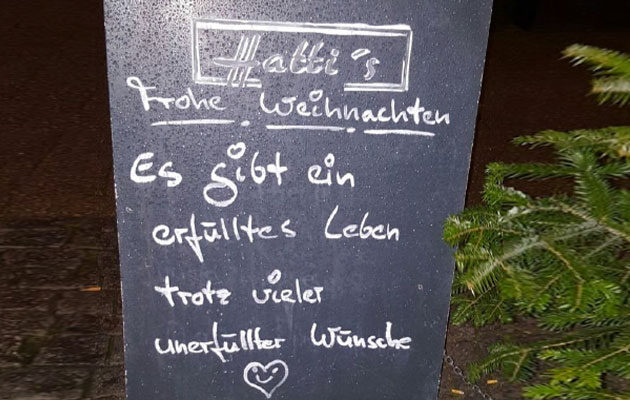 Hatti's
Frohe Weihnachten
Es gibt ein
erfülltes Leben
trotz vieler
unerfüllter Wünsche